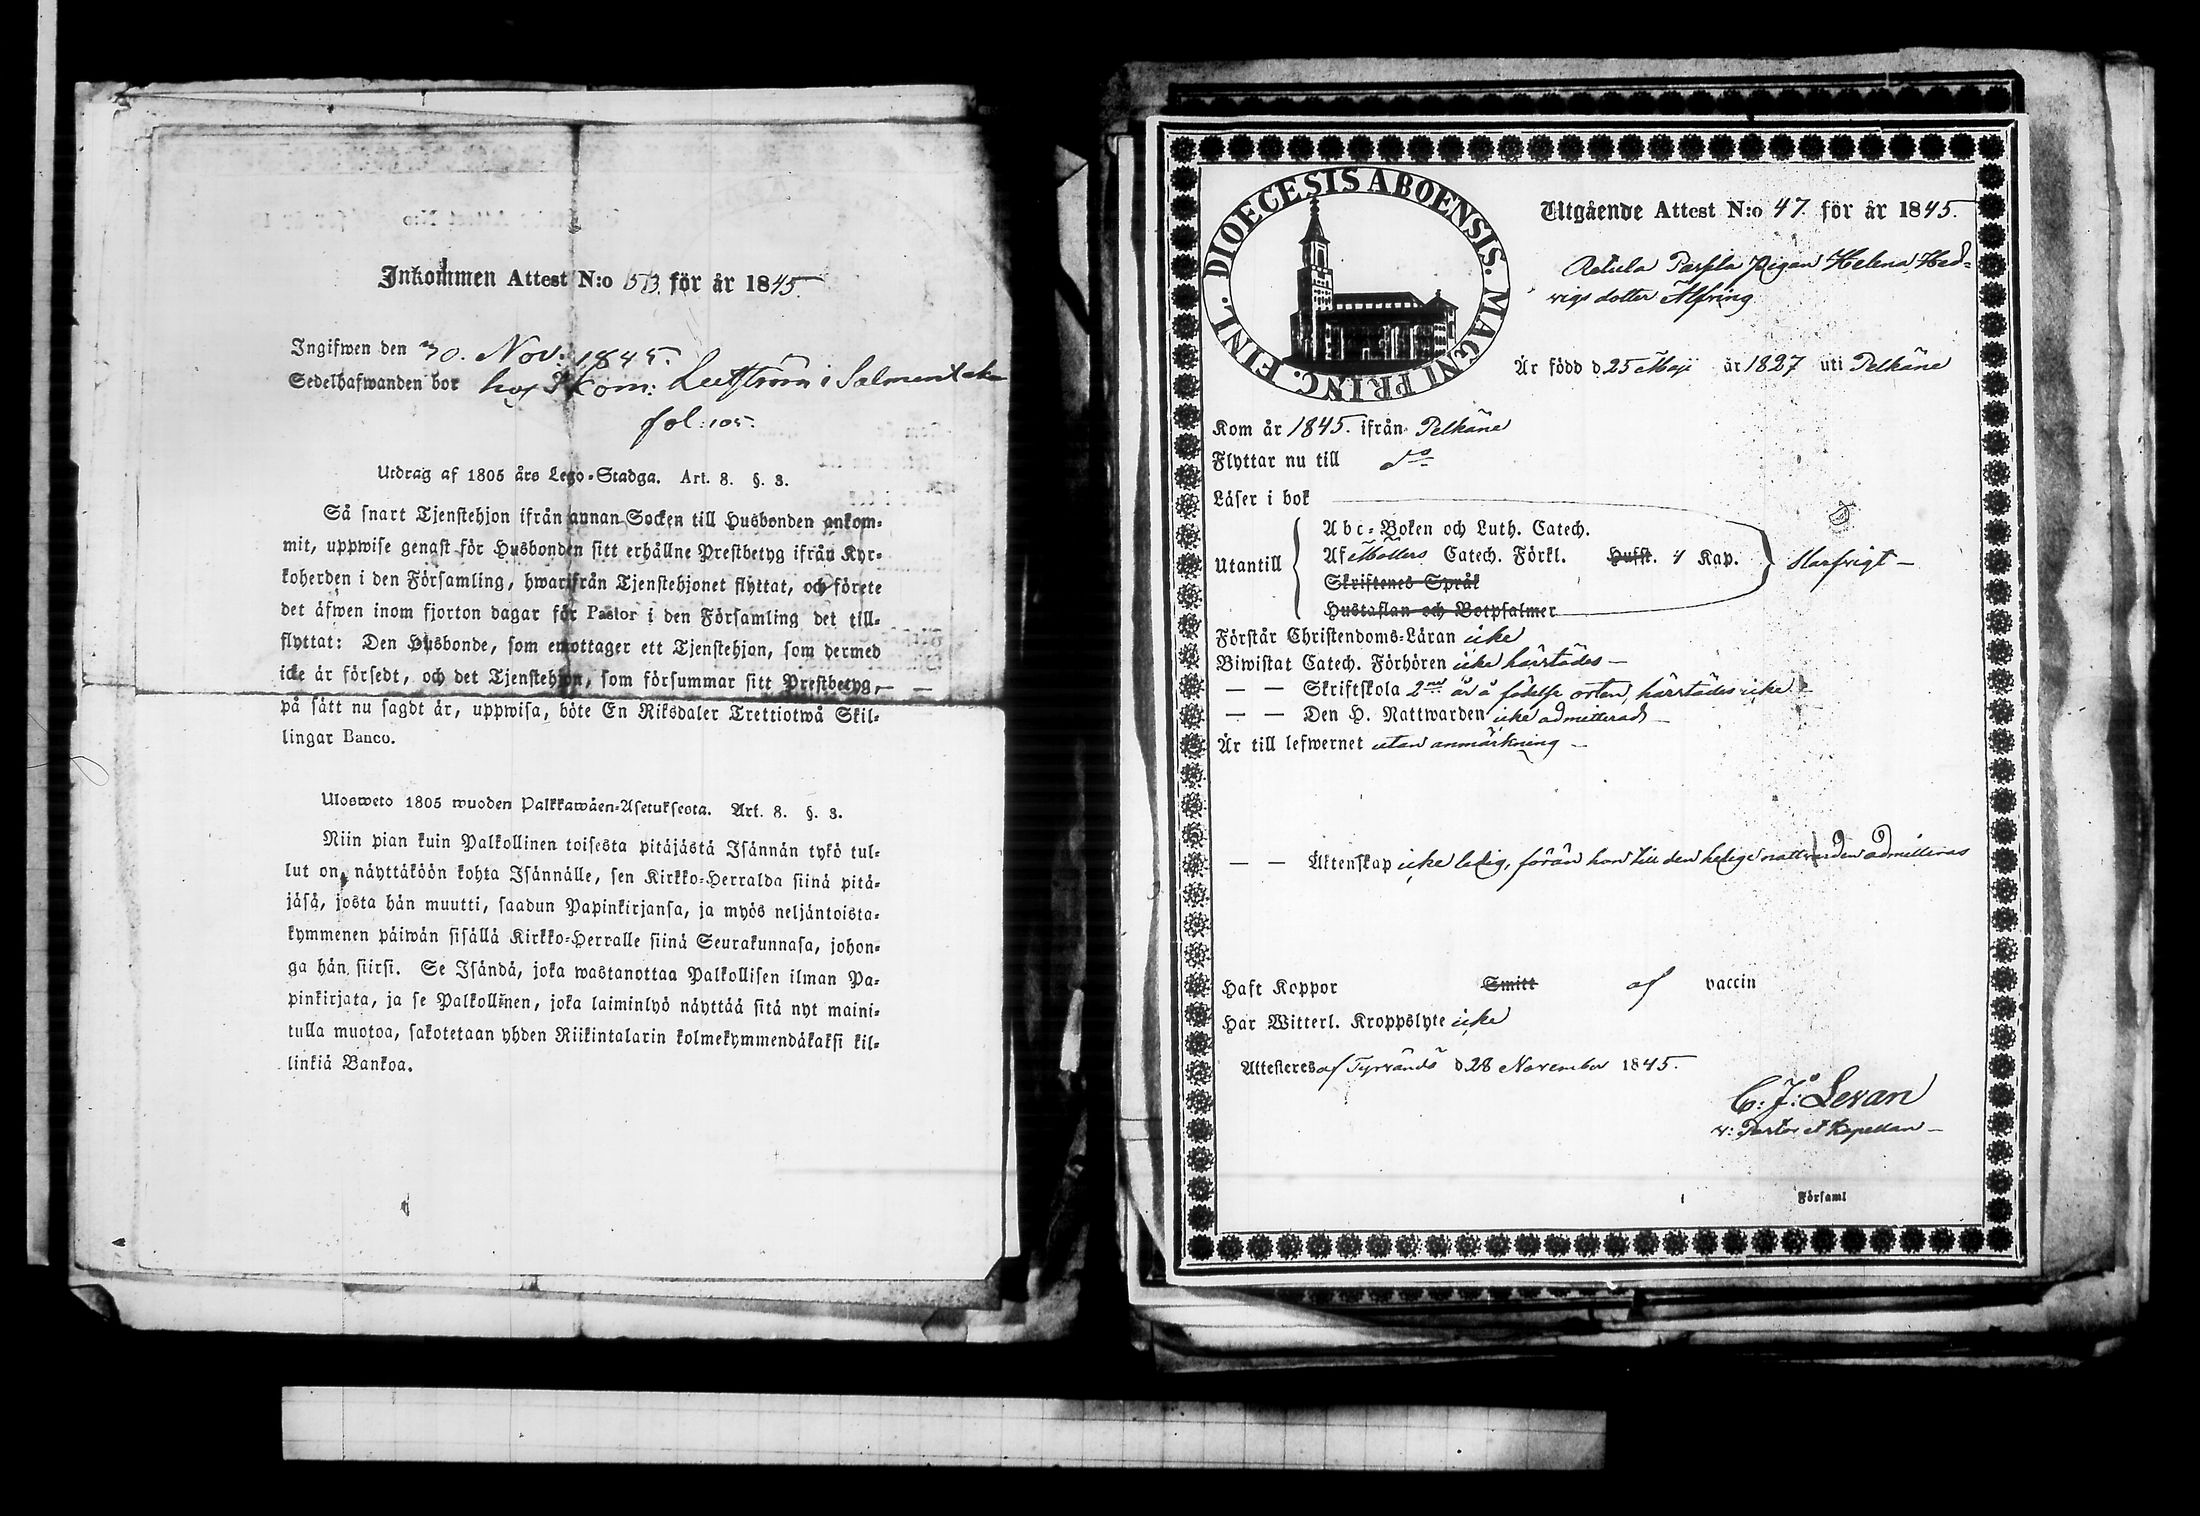 Inkommen Attest N:o 53 för år 1845.
Ingifwen den 30. Nov. 1845.
Sedelhafwanden bor hos Kom: i Salmentaka
fol: 105.
Utdrag af 1805 års Lego-Stadga. Art. 8. §. 3.
Så snart Tjenstehjon ifrån annan Socken till Husbonden ankom-
mit, uppwise genast för Husbonden sitt erhållne Prestbetyg ifrån Kyr-
koherden i den Församling, hwarifrån Tjenstehjonet flyttat, och förete
det äfwen inom fjorton dagar för Pastor i den Församling det till-
flyttat: Den Husbonde, som emottager ett Tjenstehjon, som dermed
icke är försedt, och det Tjenstehjon, som försummar sitt Prestbetyg,
på sätt nu sagdt är, uppwisa, böte En Riksdaler Trettiotwå Skil-
lingar Banco.
Ulosweto 1805 wuoden Palkkawäen-Asetuksesta. Art. 8. §. 3.
Niin pian kuin Palkollinen toisesta pitäjästä Isännän tykö tul-
lut on, näyttäköön kohta Isännälle, sen Kirkko-Herralda siinä pitä-
jäsä, josta hän muutti, saadun Papinkirjansa, ja myös neljäntoista-
kymmenen päiwän sisällä Kirkko-Herralle siinä Seurakunnasa, johon-
ga hän siirsi. Se Isändä, joka wastanottaa Palkollisen ilman Pa-
pinkirjata, ja se Palkollinen, joka laiminlyö näyttää sitä nyt maini-
tulla muotoa, sakotetaan yhden Riikintalarin kolmekymmendäkaksi kil-
linkiä Bankoa.
DIOECESIS ABOENSIS. MAGNI PRINC. FINL.
Utgående Attest N:o 47. för år 1845.
Pigan Helena Hed-
vigs dotter Alfving
Är född d 25 Maji år 1827 uti Pelkäne
Kom år 1845. ifrån Pelkäne
Flyttar nu till d:o
Läser i bok
Utantill
Abc-Boken och Luth. Catech.
Af Möllers Catech. Förkl. Hufst. 4 Kap. Slarfvigt
Skriftenes Språk
Hustaflan och Botpsalmer
Förstår Christendoms-Läran icke
Biwistat Catech. Förhören icke härstädes
— — Skriftskola 2ne år å födelse orten, härstädes icke
— — Den H. Nattwarden icke admitterad
Är till lefwernet utan anmärkning
— — Äktenskap icke ledig, förän hon till den helige nattvarden admitteras
Haft Koppor Smitt af vaccin
Har Witterl. Kroppslyte icke
Attesteres af Tyrvändö d 28 November 1845.
C: J: Levan
v: Pastor et Kapellan
i Församl